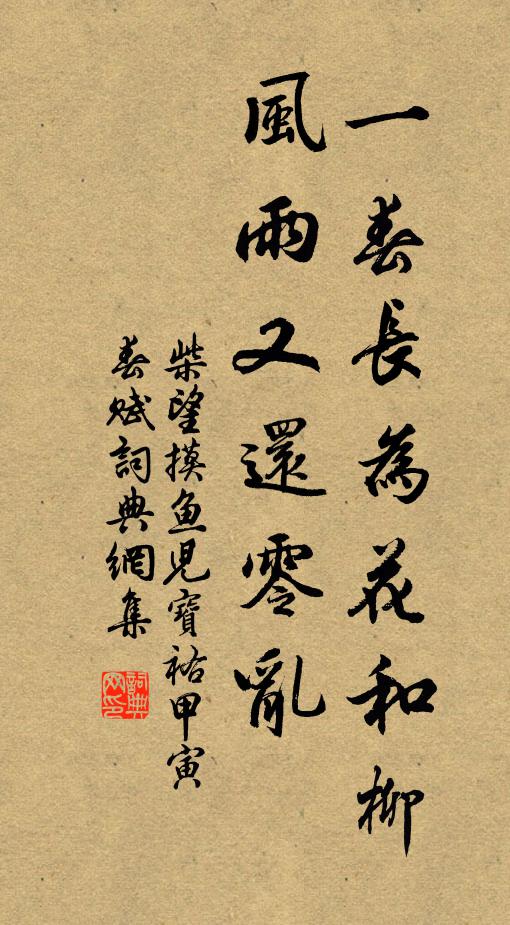 一春長為花和柳
風雨又還零亂
柴望摸魚兒寶祐甲寅
春賦詞典網集
詞典
网印